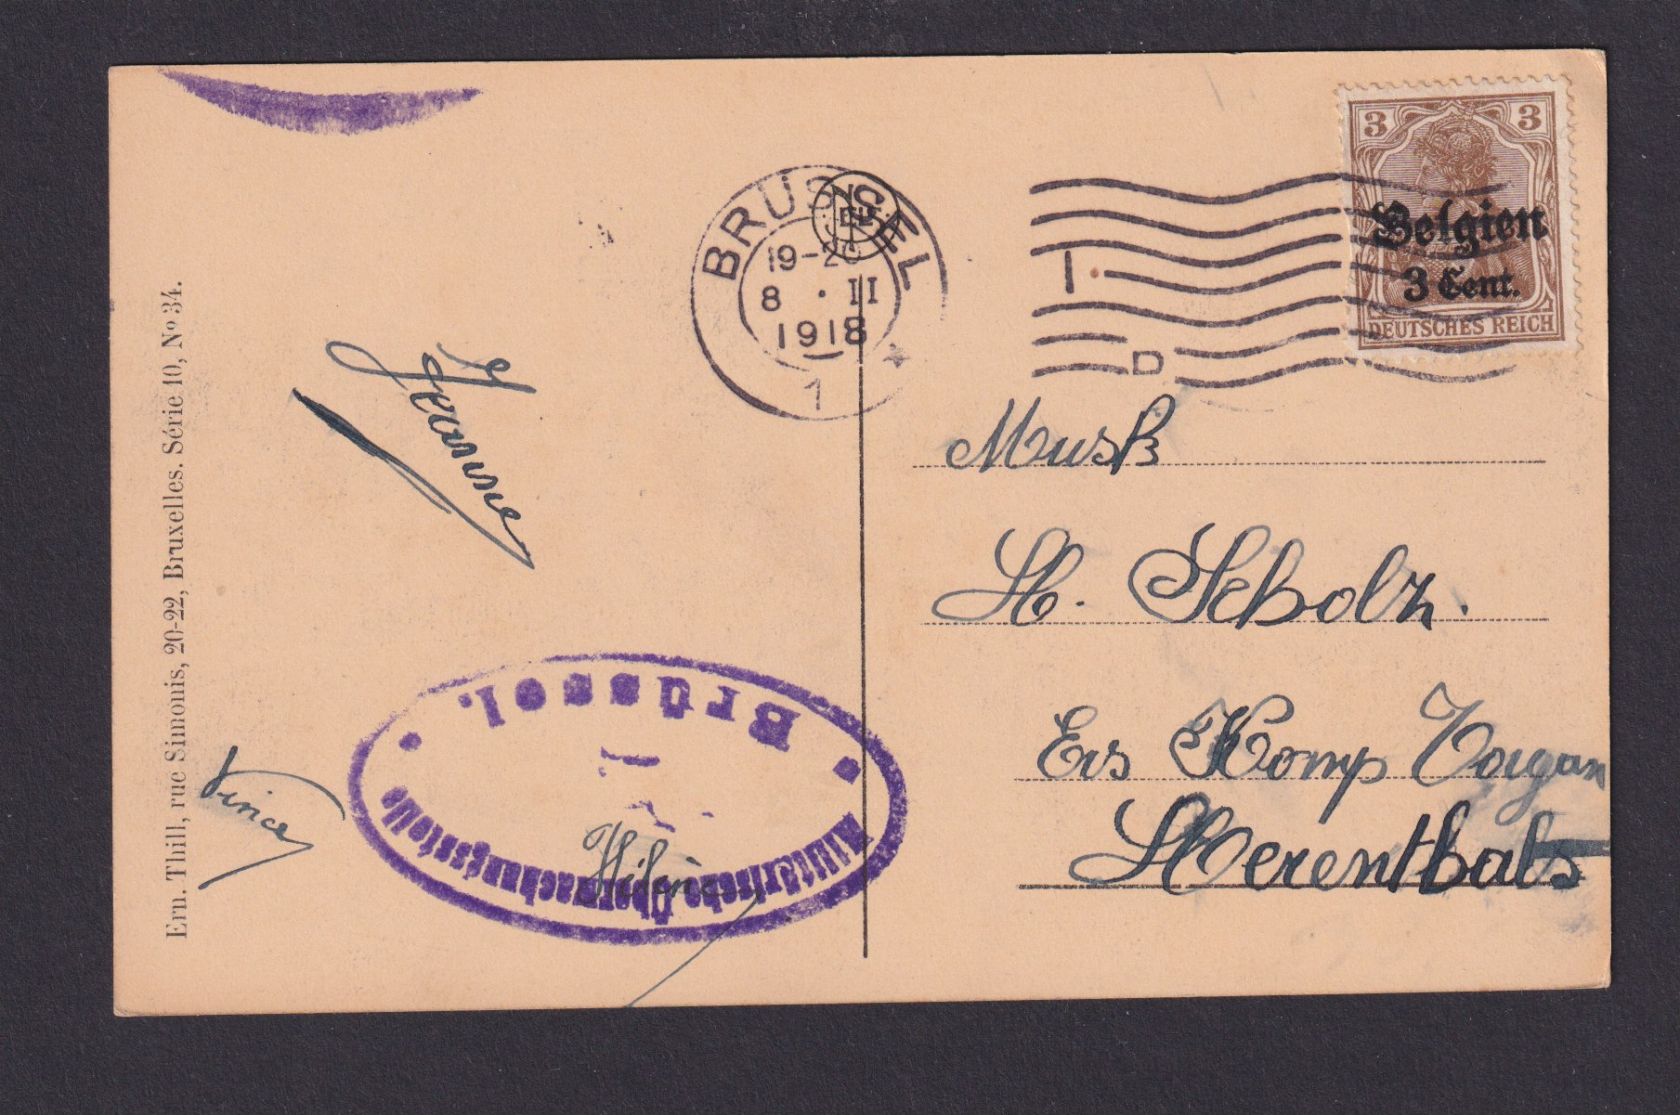 Ern. Thill, rue Simonis, 20-22, Bruxelles. Série 10, Nº 34.
BRÜSSEL
19-20
8 · II
1918
1
3 3
Belgien
3 Cent.
DEUTSCHES REICH
1
D
Jeanne
Musk
H. Scholz.
Ers Komp
Herenthals
Brüssel.
Militärische Überwachungsstelle